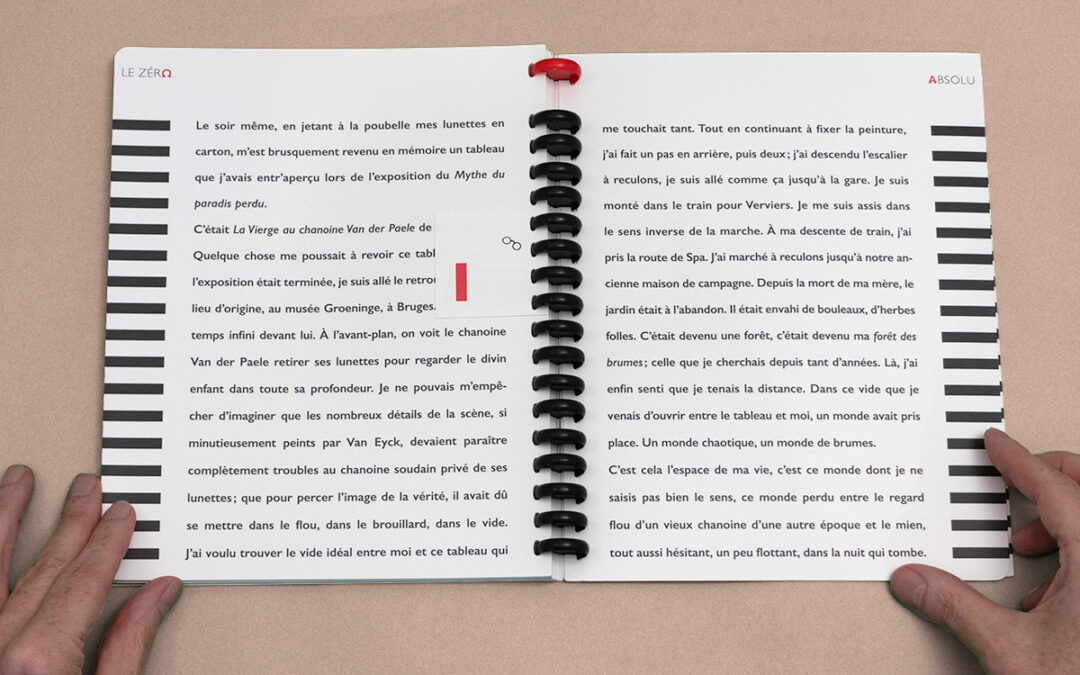 LE ZÉRΩ
Le soir même, en jetant à la poubelle mes lunettes en
carton, m'est brusquement revenu en mémoire un tableau
que j'avais entr'aperçu lors de l'exposition du Mythe du
paradis perdu.
C'était La Vierge au chanoine Van der Paele de
Quelque chose me poussait à revoir ce
l'exposition était terminée, je suis allé le
lieu d'origine, au musée Groeninge, à Bruges.
temps infini devant lui. À l'avant-plan, on voit le chanoine
Van der Paele retirer ses lunettes pour regarder le divin
enfant dans toute sa profondeur. Je ne pouvais m'empê-
cher d'imaginer que les nombreux détails de la scène, si
minutieusement peints par Van Eyck, devaient paraître
complètement troubles au chanoine soudain privé de ses
lunettes ; que pour percer l'image de la vérité, il avait dû
se mettre dans le flou, dans le brouillard, dans le vide.
J'ai voulu trouver le vide idéal entre moi et ce tableau qui
ABSOLU
me touchait tant. Tout en continuant à fixer la peinture,
j'ai fait un pas en arrière, puis deux ; j'ai descendu l'escalier
à reculons, je suis allé comme ça jusqu'à la gare. Je suis
monté dans le train pour Verviers. Je me suis assis dans
le sens inverse de la marche. À ma descente de train, j'ai
pris la route de Spa. J'ai marché à reculons jusqu'à notre an-
cienne maison de campagne. Depuis la mort de ma mère, le
jardin était à l'abandon. Il était envahi de bouleaux, d'herbes
folles. C'était devenu une forêt, c'était devenu ma forêt des
brumes ; celle que je cherchais depuis tant d'années. Là, j'ai
enfin senti que je tenais la distance. Dans ce vide que je
venais d'ouvrir entre le tableau et moi, un monde avait pris
place. Un monde chaotique, un monde de brumes.
C'est cela l'espace de ma vie, c'est ce monde dont je ne
saisis pas bien le sens, ce monde perdu entre le regard
flou d'un vieux chanoine d'une autre époque et le mien,
tout aussi hésitant, un peu flottant, dans la nuit qui tombe.